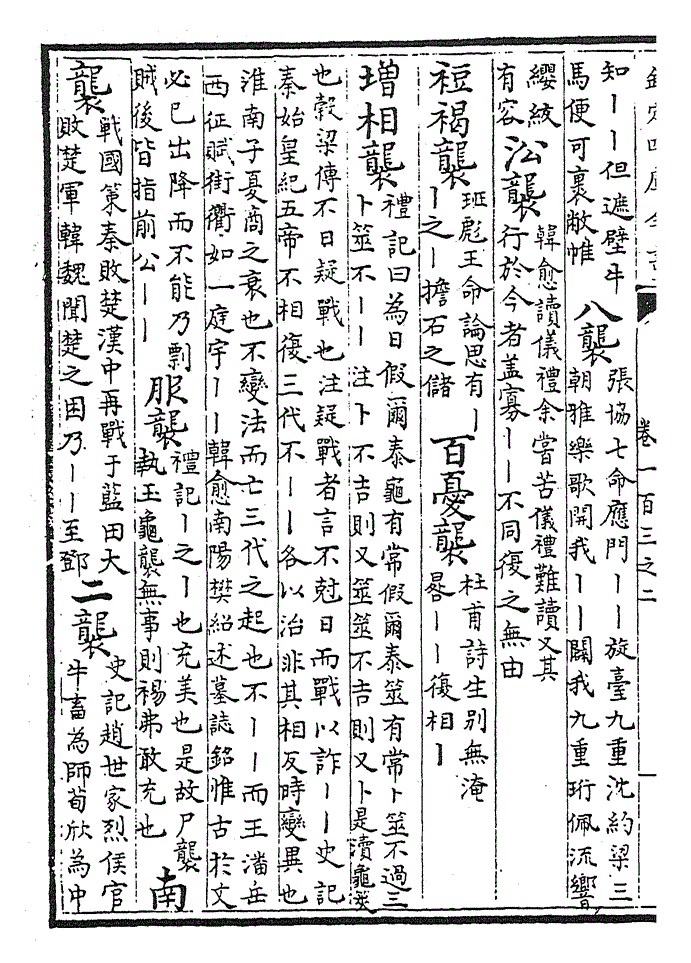 欽定四庫全書 卷一百三之二
知丨丨但遮壁牛
馬便可裹敝帷
八襲
張協七命應門丨丨旋臺九重沈約梁三
朝雅樂歌開我丨丨闢我九重珩佩流響
纓紱
有容
㳂襲
韓愈讀儀禮余嘗苦儀禮難讀又其
行於今者蓋寡丨丨不同復之無由
裋褐襲
班彪王命論思有丨
丨之丨擔石之儲
百憂襲
杜甫詩生別無淹
晷丨丨復相丨
增相襲
禮記曰為日假爾泰龜有常假爾泰筮有常卜筮不過三
卜筮不丨丨注卜不吉則又筮筮不吉則又卜是瀆龜筴
也穀梁傳不日疑戰也注疑戰者言不尅日而戰以詐丨丨史記
秦始皇紀五帝不相復三代不丨丨各以治非其相反時變異也
淮南子夏商之衰也不變法而亡三代之起也不丨丨而王潘岳
西征賦街衢如一庭宇丨丨韓愈南陽樊紹述墓誌銘惟古於文
必已出降而不能乃剽
賊後皆指前公丨丨
服襲
禮記丨之丨也充美也是故尸襲
執玉龜襲無事則裼弗敢充也
南
襲
戰國策秦敗楚漢中再戰于藍田大
敗楚軍韓魏聞楚之困乃丨丨至鄧
二襲
史記趙世家烈侯官
牛畜為師荀欣為中